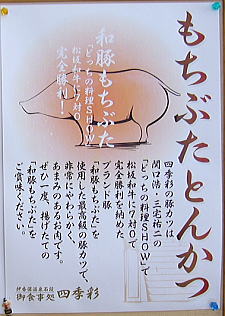 もちぶたとんかつ
和豚もちぶた
「どっちの料理SHOW」で
松坂和牛に7対0
完全勝利！
四季彩の豚カツは、
関口浩一三宅祐二の
「どっちの料理SHOW」で
松坂和牛に7対0で
完全勝利を納めた
ブランド豚
「和豚もちぶた」を
使用した最高級の豚カツで、
非常にやわらかく、
あまみのあるお肉です。
ぜひ一度、揚げたての
「和豚もちぶた」を
ご賞味ください。
伊香保温泉石段
御食事処 四季彩